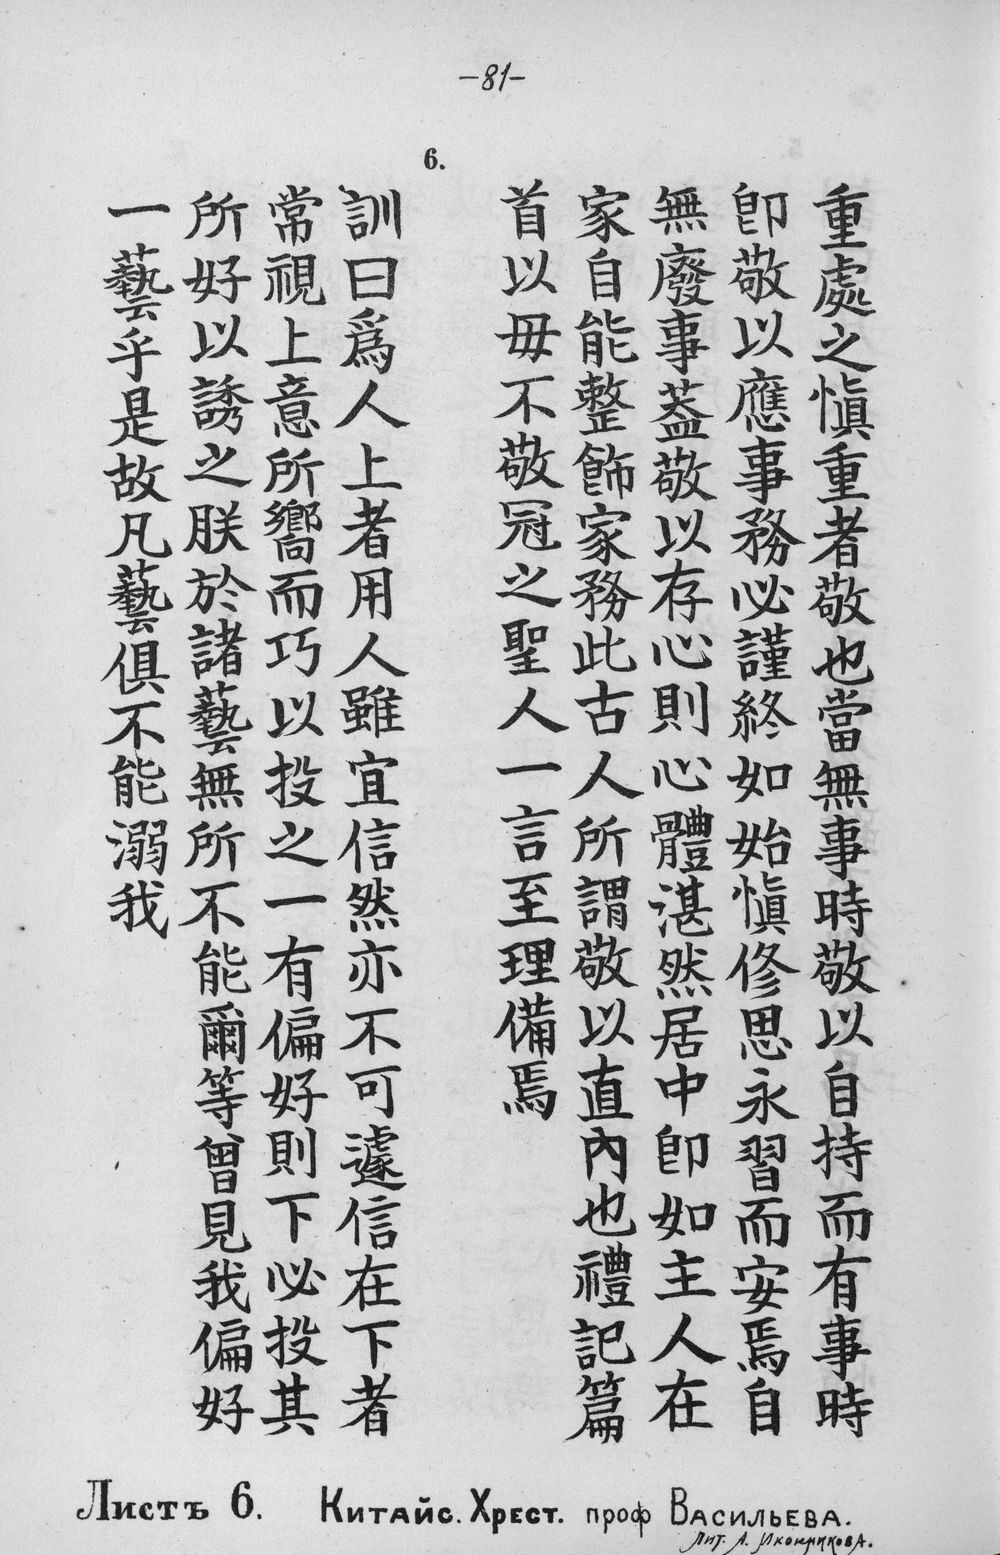 –81–
重處之愼重者敬也當無事時敬以自持而有事時
卽敬以應事務必謹終如始愼修思永習而安焉自
無廢事葢敬以存心則心體湛然居中卽如主人在
家自能整飾家務此古人所謂敬以直內也禮記篇
首以毋不敬冠之聖人一言至理備焉
6.
訓曰爲人上者用人雖宜信然亦不可遽信在下者
常視上意所嚮而巧以投之一有偏好則下必投其
所好以誘之朕於諸藝無所不能爾等曾見我偏好
一藝乎是故凡藝俱不能溺我
Листъ 6. Китайс. Хрест. проф Васильева.
Лит. А. Иконникова.